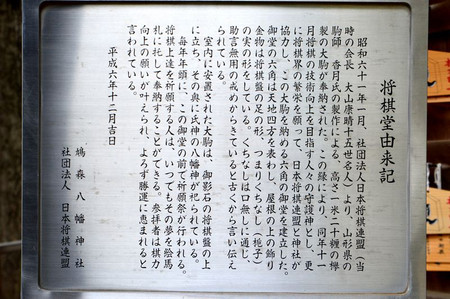 将棋堂由来記
昭和六十一年一月、社団法人日本将棋連盟（当
時の会長 大山康晴十五世名人）より、山形県の
駒師・香月氏の製作による、高さ一米二十糎の欅
製の大駒が奉納された。この縁により同年十一
月将棋の技術向上を目指す人々の守護神とし、更
に将棋界の繁栄を願って、日本将棋連盟と神社が
協力し、この大駒を納める六角の御堂を建立した。
御堂の六角は天地四方を表わし、屋根の上の飾り
金物は将棋盤の足の形、つまりくちなし（梔子）
の実の形をしている。くちなしは口無しに通じ、
助言無用の戒めからきていると古くから言い伝え
られている。
室内に安置された大駒は、御影石の将棋盤の上
に立ち、その奥に氏神の八幡神が祀られている。
毎年年頭に、この御堂の前で祈願祭が行われる。
将棋上達を祈願する人は、いつでもその夢を絵馬
札に托して奉納することができる。参拝者は棋力
向上の願いが叶えられ、よろず勝運に恵まれると
言われている。
平成六年十二月吉日
鳩森八幡神社
社団法人 日本将棋連盟